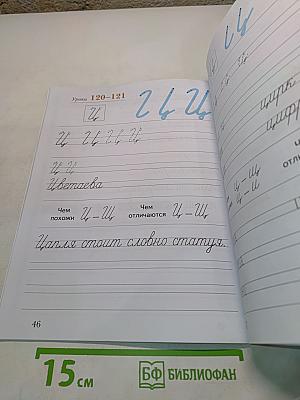 Уроки 120–121
Ц
Ц Ц Ц Ц
Ц Ц
Цветаева
Чем похожи Ц – Щ Чем отличаются Ц – Щ
Цапля стоит словно статуя.
46
Ц
цирк
цифр
Ц – Щ
Ц – И
15 см БФ БИБЛИОФАН